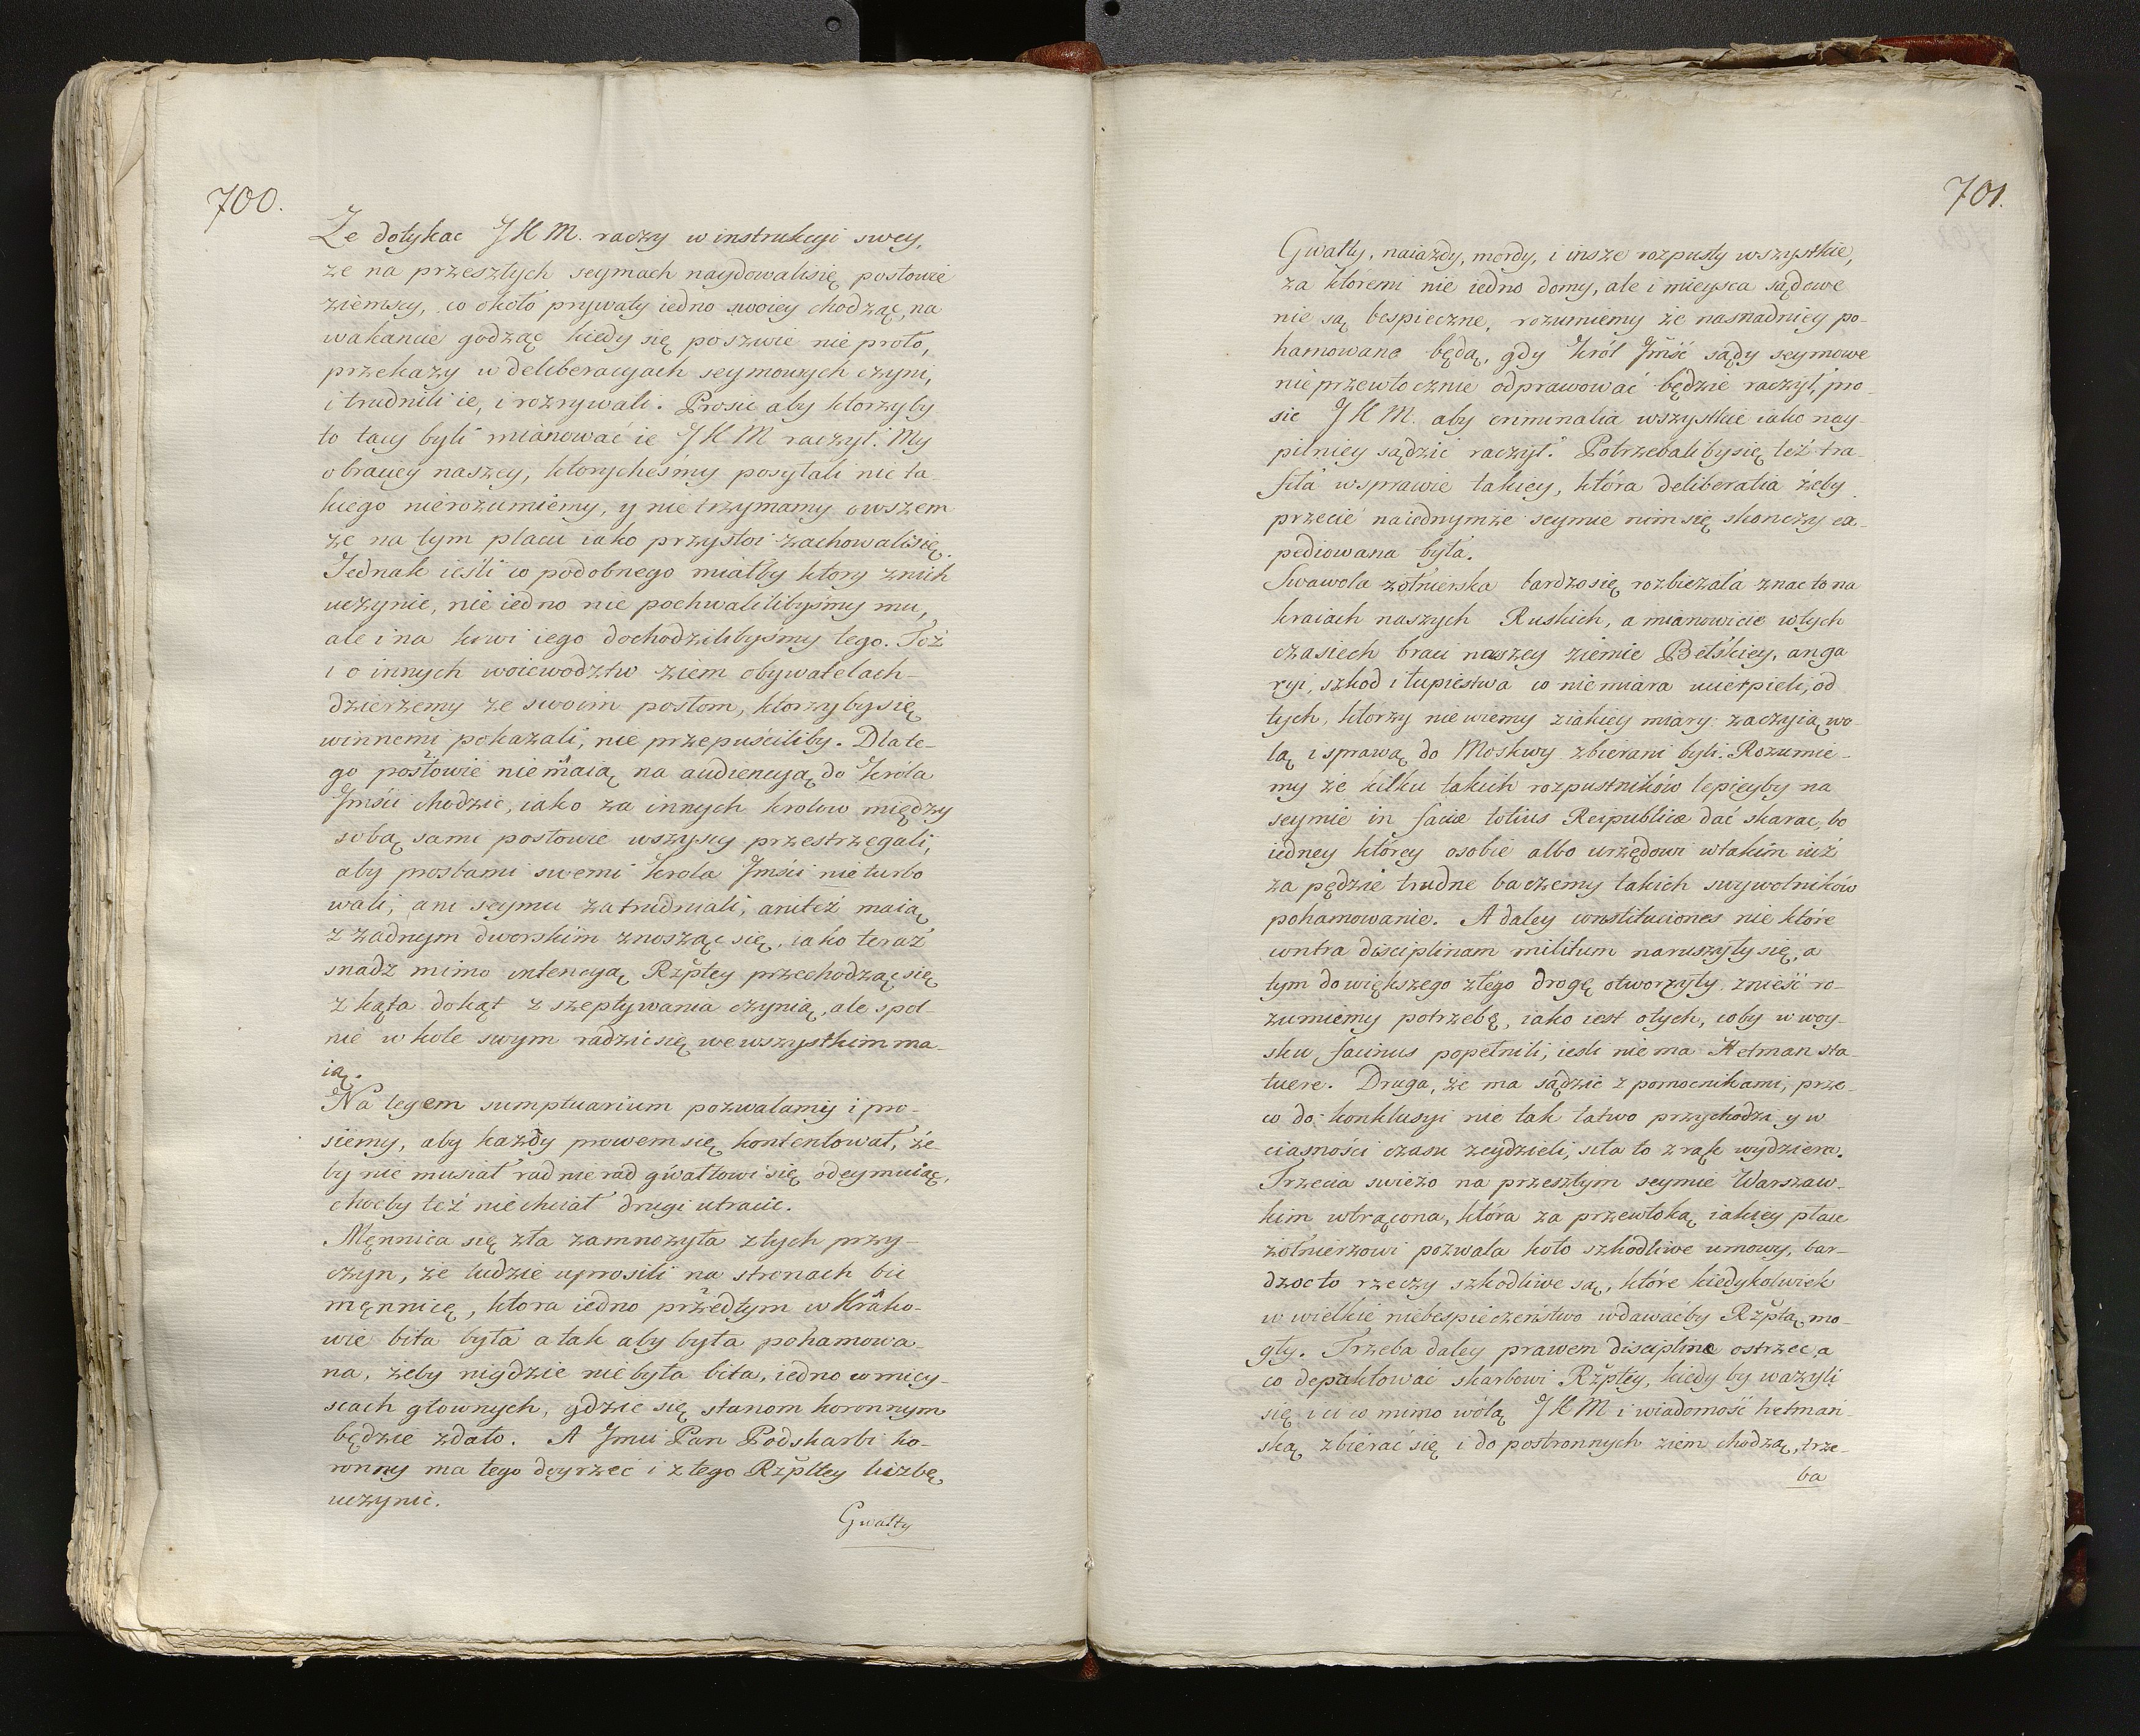 700.
Że dotykac JKM. raczy w instrukcyi swey,
że na przeszłych seymach naydowalisię posłowie
ziemscy, co około prywaty iedno swoiey chodząc, na
wakancie godząc kiedy się poszwie nie proto,
przekazy w deliberacyach seymowych czyni,
i trudnili ie, i rozrywali. Prosic aby ktorzyby
to tacy byli mianować ie JKM raczył. My
o braciey naszey, ktorycheśmy posyłali nic ta-
kiego nierozumiemy, y nie trzymamy owszem
że na tym placu iako przystoi zachowalisię.
Jednak ieśli co podobnego miałby ktory znich
uczynic, nie iedno nie pochwalilibyśmy mu,
ale i na krwi iego dochodzilibyśmy tego. Toż
i o innych woiewodztw ziem obywatelach-
dzierżemy że swoim posłom, ktorzybysię
winnemi pokazali, nie przepuściliby. Dlate-
go posłowie niemaią na audiencyą do Króla
Jmści chodzic, iako za innych krolow między
sobą sami posłowie wszyscy przestrzegali,
aby prosbami swemi Krola Jmści nieturbo
wali, ani seymu zatrudniali, anitéż maią
z żadnym dworskim znosząc się, iako teraz
snadz mimo intencyą Rzpltey przechodząc się
z kąta dokąt z szeptywania czynią, ale spol-
nie w kole swym radzicsię wewszystkim ma-
ią.
Na legem sumptuarium pozwalamy i pro-
siemy, aby każdy prawem się kontentował, że-
by nie musiał rad nie rad gwałtowi się odeymuiąc,
choćby też niechciał drugi utracic.
Męnnica się zła zamnożyła z tych przy-
czyn, że ludzie uprosili na stronach bic
męnnicę, ktora iedno przedtym w Krako-
wie bita była a tak aby była pohamowa-
na, żeby nigdzie nie była bita, iedno w miey-
scach głownych, gdzie się stanom koronnym
będzie zdało. A Jmci Pan Podskarbi ko-
ronny ma tego doyrzeć i z tego Rzpltey liczbę
uczynic.
Gwałty
701.
Gwałty, naiazdy, mordy, i insze rozpusty wszystkie,
za któremi nie iedno domy, ale i mieysca sądowe
nie są bespieczne, rozumiemy że nasnadniey po-
hamowane będą, gdy Król Jmść sądy seymowe
nieprzewłocznie odprawować będzie raczył, pro-
sic JKM. aby criminalia wszystkie iako nay-
pilniey sądzić raczył. Potrzebalibysię też tra-
fiła wsprawie takiey, która deliberatia żeby
przecie naiednymże seymie nim się skonczy ex-
pediowana była.
Swawola żołnierska bardzosię rozbieżała znac to na
kraiach naszych Ruskich, a mianowicie wtych
czasiech braci naszey ziemie Bełskiey, anga
ryi, szkod i łupiestwa co niemiara ucierpieli, od
tych, ktorzy niewiemy ziakiey miary zaczyią wo-
lą i sprawą do Moskwy zbierani byli. Rozumie-
my że kilku takich rozpustników lepieyby na
seymie in facie totius Reipublicæ dać skarac, bo
iedney którey osobie albo urzędowi wtakim iuż
za pędzie trudne baczemy takich swywolników
pohamowanie. A daley constituciones nie które
contra disciplinam militum naruszyłysię, a
tym dowiększego złego drogę otworzyły znieść ro-
zumiemy potrzebę, iako iest otych, coby w woy-
sku facinus popełnili, iesli nie ma Hetman sta-
tuere. Druga, że ma sądzic z pomocnikami, prze-
co do konklusyi nie tak łatwo przychodzi y w
ciasności czasu zeydzieli, siła to z rąk wydziera.
Trzecia swieżo na przeszłym seymie Warszaw-
kim wtrącona, która za przewłoką iakiey płace
żołnierzowi pozwala koło szkodliwe umowy, bar-
dzoto rzeczy szkodliwe są, które kiedykolwiek
w wielkie niebespieczeństwo wdawaćby Rzptą mo-
gły. Trzeba daley prawem discipline ostrzec a
co depaktować skarbowi Rzpltey, kiedyby ważyli
się i ci co mimo wolą JKM i wiadomość hetmań-
ską zbierać się i do postronnych ziem chodzą, trze-
ba